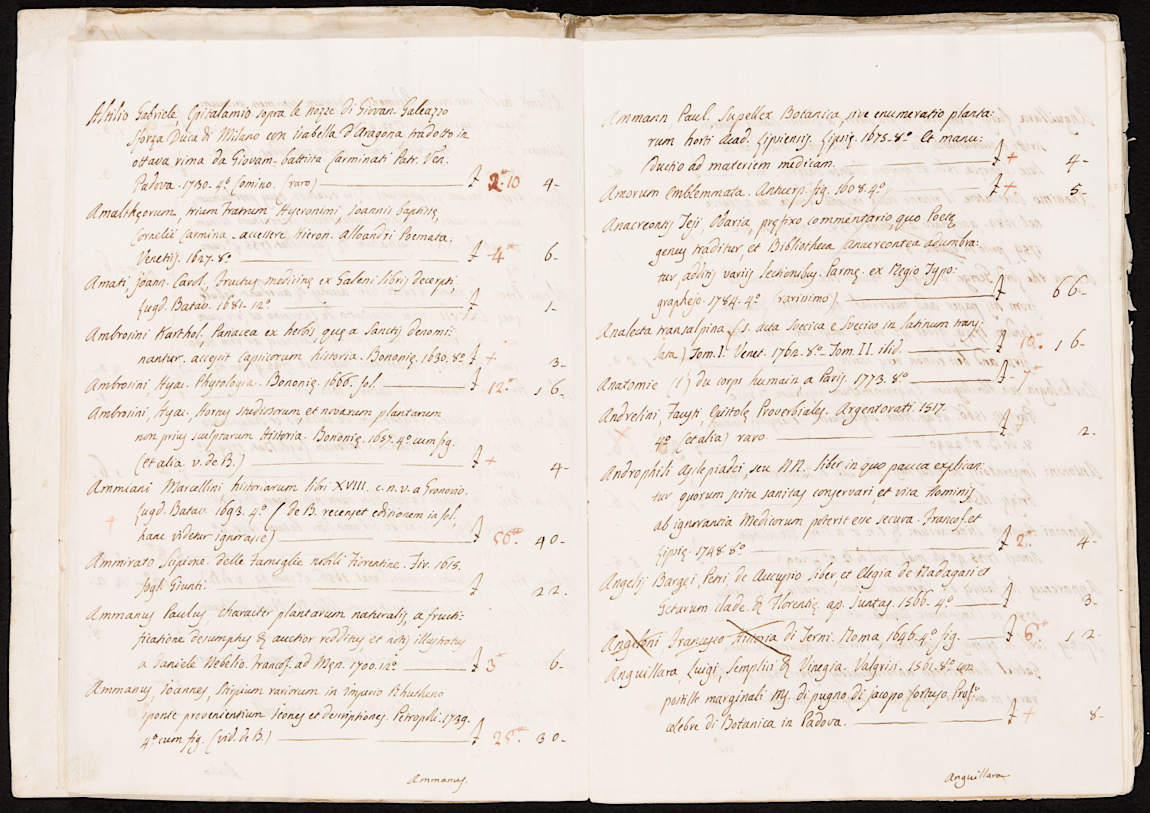 Altilio Gabriele, Epitalamio sopra le nozze di Giovan Galeazzo
Sforza Duca di Milano con Isabella d'Aragona tradotto in
ottava rima da Giovam. battista Carminati Patr. Ven.
Padova. 1730. 4.º Comino. (raro) £ 2. 10 4-
Amaltheorum, trium Fratrum Hyeronimi, Joannis baptistę
Cornelii Carmina. accessere Hieron. Alleandri Poemata.
Venetijs. 1627. 8.º £ 4 6-
Amati, Joann. Carol. Fructus medicinę ex Galeni libris decerpti,
Lugd. Batav. 1681. 12.º £ 1-
Ambrosini Barthol. Panacea ex herbis, quę a Sanctis denomi:
nantur. acceßit Capsicorum historia. Bononię. 1630. 8.º £ + 3-
Ambrosini, Hyac. Phytologia. Bononię. 1666. fol. £ 12. 16-
Ambrosini, Hyac. Hortus studiosorum, et novarum plantarum
non prius sculptarum Historia. Bononię. 1657. 4.º cum fig.
(et alia v. de B.) £ + 4-
Ammiani Marcellini historiarum libri XVIII. c. n. v. a Gronovio.
Lugd. Batav. 1693. 4.º (de B. recenset editionem in fol,
+ hanc videtur ignorasse) £ 56 40-
Ammirato Scipione delle Famiglie nobili Fiorentine. Fir. 1615.
fogl. Giunti. £ 22.
Ammanus Paulus, character plantarum naturalis, a fructi:
ficatione desumptus &c auctior redditus, et notis illustratus
a Daniele Nebelio. Francof. ad Męn. 1700. 12.º £ 3 6-
Ammanus, Joannes, Stirpium rariorum in Imperio Rhutheno
sponte provenientium Icones et descriptiones. Petropoli. 1739.
4.º cum fig. (vid. de B.) £ 25. 30-
Ammanus.
Ammann Paul. Supellex Botanica, sive enumeratio planta:
rum horti Acad. Lipsiensis. Lipsię. 1675. 8.º Et manu:
ductio ad materiem medicam. £ + 4-
Amorum Emblemmata. Antuerp. fig. 1608. 4.º £ + 5-
Anacreontis Teji, Odaria, pręfixo commentario, quo Poetę
genus traditur, et Bibliotheca Anacreontea adumbra:
tur, additis variis lectionibus. Parmę. ex Regio Typo:
grapheio. 1784. 4.º (rarissimo) £ 66-
Analecta transalpina (s. acta Svecica e Svecico in latinum trans:
lata) Tom. I. Venet. 1762. 8.º Tom. II. ibid. £ 10. 16-
Anatomie (l') du corps humain, a Paris. 1773. 8.º £ 7
Andrelini, Fausti, Epistolę Proverbiales. Argentorati. 1517.
4.º (et alia) raro £ + 2-
Androphili Asclepiadei, seu NN. liber in quo pauca explican:
tur quorum scitu sanitas conservari, et vita Hominis
ab ignorantia Medicorum poterit esse secura. Francof. et
Lipsię. 1748. 8.º £ 2. 4-
Angelij Bargęi Petri de Aucupio liber, et Elegia de Nadagasi et
Getarum clade. &c Florentię. ap. Juntas. 1566. 4.º £ 3-
Angeloni Francesco, Historia di Terni. Roma 1646. 4.º fig. £ 6 12-
Anguillara, Luigi, Semplici &c Vinegia. Valgrisi. 1561. 8.º con
postille marginali Ms. di pugno di Jacopo Cortuso, Prof.e
celebre di Botanica in Padova. £ + 8-
Anguillara